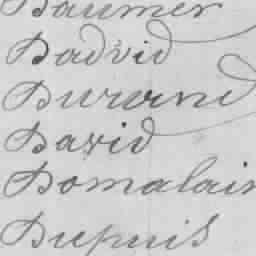 Daumer
Dadvid
Durand
David
Domalain
Dupuis